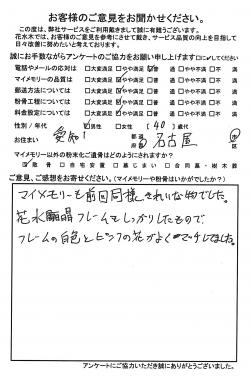 お客様のご意見をお聞かせください。
この度は、弊社サービスをご利用戴きまして誠に有難うございます。
花水木では、お客様のご意見を参考にさせて戴き、サービス品質の向上を目指して
日々改善に努めたいと考えております。
誠にお手数ながらアンケートのご協力をお願い申し上げます
電話やメールの応対は □大変満足 満足 □普通 □やや不満 □不満
マイメモリーの品質は □大変満足 満足 □普通 □やや不満 □不満
郵送方法について □大変満足 □満足 普通 □やや不満 □不満
粉骨工程について □大変満足 満足 □普通 □やや不満 □不満
料金設定について □大変満足 満足 □普通 □やや不満 □不満
性別/年代 男性 □女性 (40)歳代
お住まい 愛知 都道府県 名古屋
マイメモリー以外の粉末化ご遺骨はどのようにされますか?
散骨 □自宅安置 □墓じまい □合同墓・樹木葬
ご意見、ご感想をお寄せください。(マイメモリーや粉骨はいかがでしたか?)
マイメモリーも前回同様きれいな物でした。
花水晶フレームでしっかりしたもので
フレームの白色とピンクの花がよくマッチしてました。
アンケートにご協力いただき誠にありがとうございました。